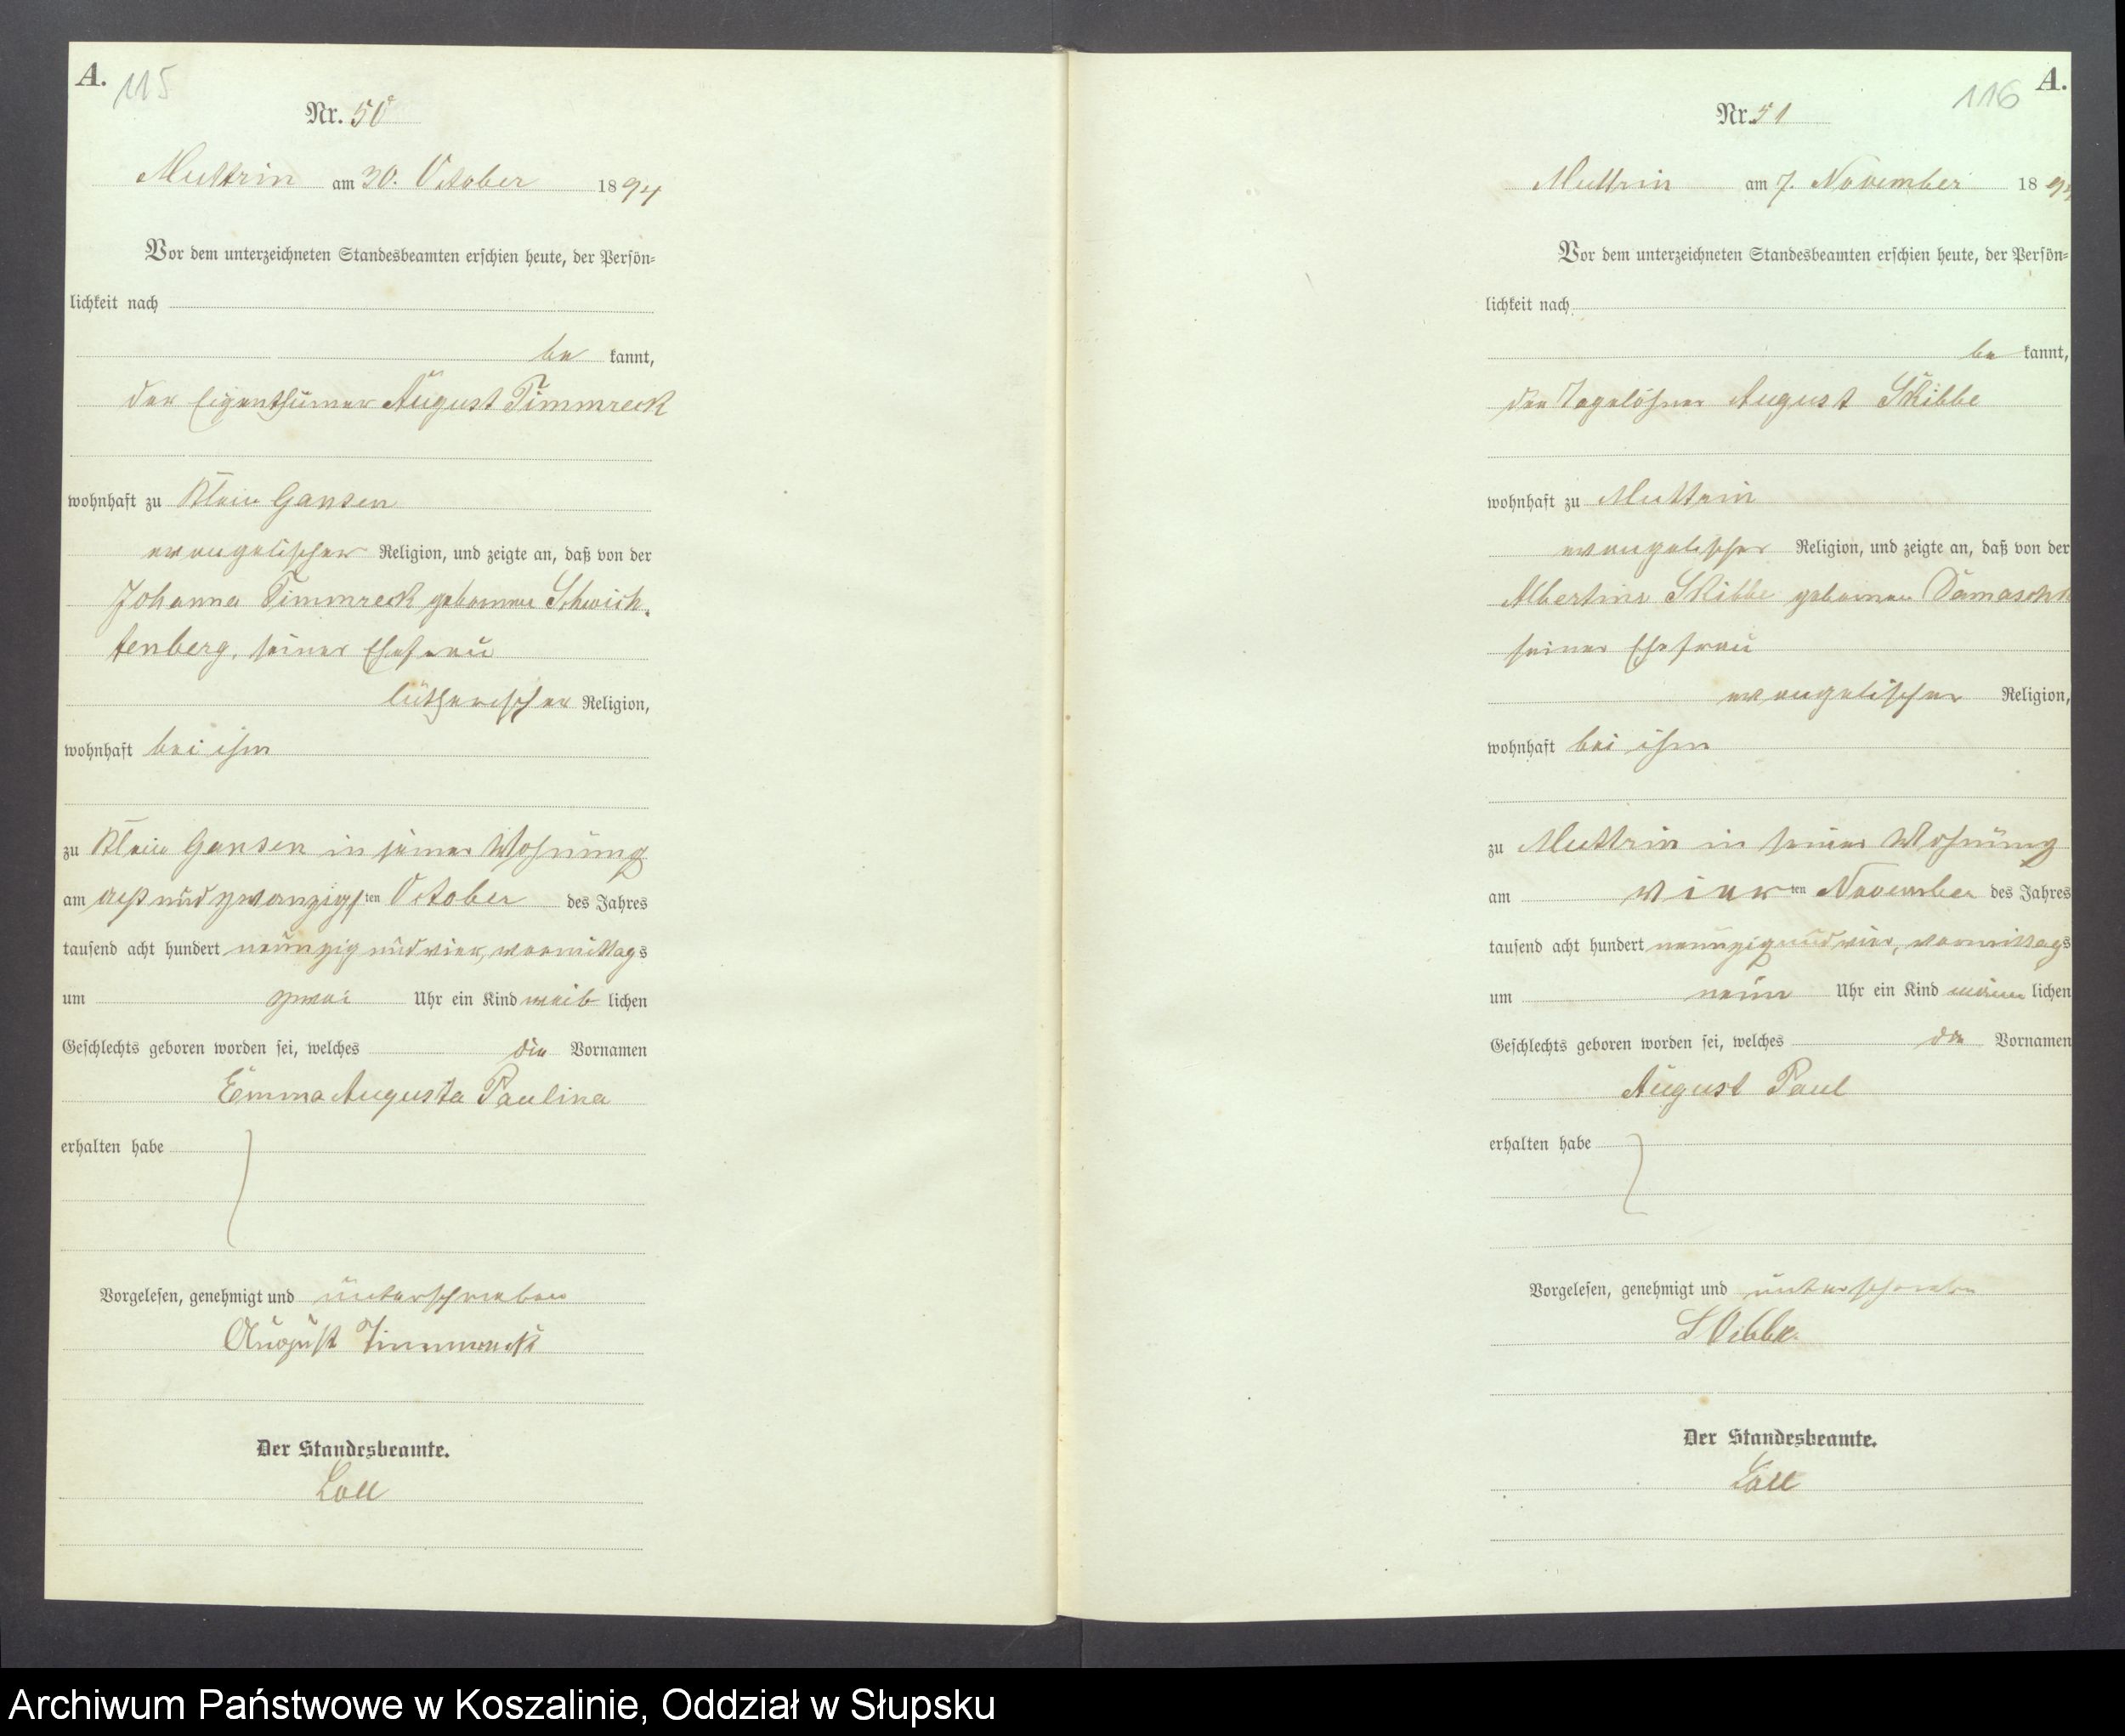 A. 115
Nr. 50
Muttrin am 30. October 1894
Vor dem unterzeichneten Standesbeamten erschien heute, der Persön-
lichkeit nach
be kannt,
der Eigenthümer August Timmreck
wohnhaft zu Klein Gansen
evangelischer Religion, und zeigte an, daß von der
Johanna Timmreck geborenen Schwich-
tenberg, seiner Ehefrau
lutherischer Religion,
wohnhaft bei ihm
zu Klein Gansen in seiner Wohnung
am acht und zwanzigsten October des Jahres
tausend acht hundert neunzig und vier, vormittags
um zwei Uhr ein Kind weib lichen
Geschlechts geboren worden sei, welches die Vornamen
Emma Augusta Paulina
erhalten habe
Vorgelesen, genehmigt und unterschrieben
August Timmreck
Der Standesbeamte.
Loll
116 A.
Nr. 51
Muttrin am 7. November 1894
Vor dem unterzeichneten Standesbeamten erschien heute, der Persön-
lichkeit nach
be kannt,
der Tagelöhner August Skibbe
wohnhaft zu Muttrin
evangelischer Religion, und zeigte an, daß von der
Albertine Skibbe geborenen Damaschk
seiner Ehefrau
evangelischer Religion,
wohnhaft bei ihm
zu Muttrin in seiner Wohnung
am vier ten November des Jahres
tausend acht hundert neunzig und vier, vormittags
um neun Uhr ein Kind männ lichen
Geschlechts geboren worden sei, welches die Vornamen
August Paul
erhalten habe
Vorgelesen, genehmigt und unterschrieben
Skibbe.
Der Standesbeamte.
Loll
Archiwum Państwowe w Koszalinie, Oddział w Słupsku